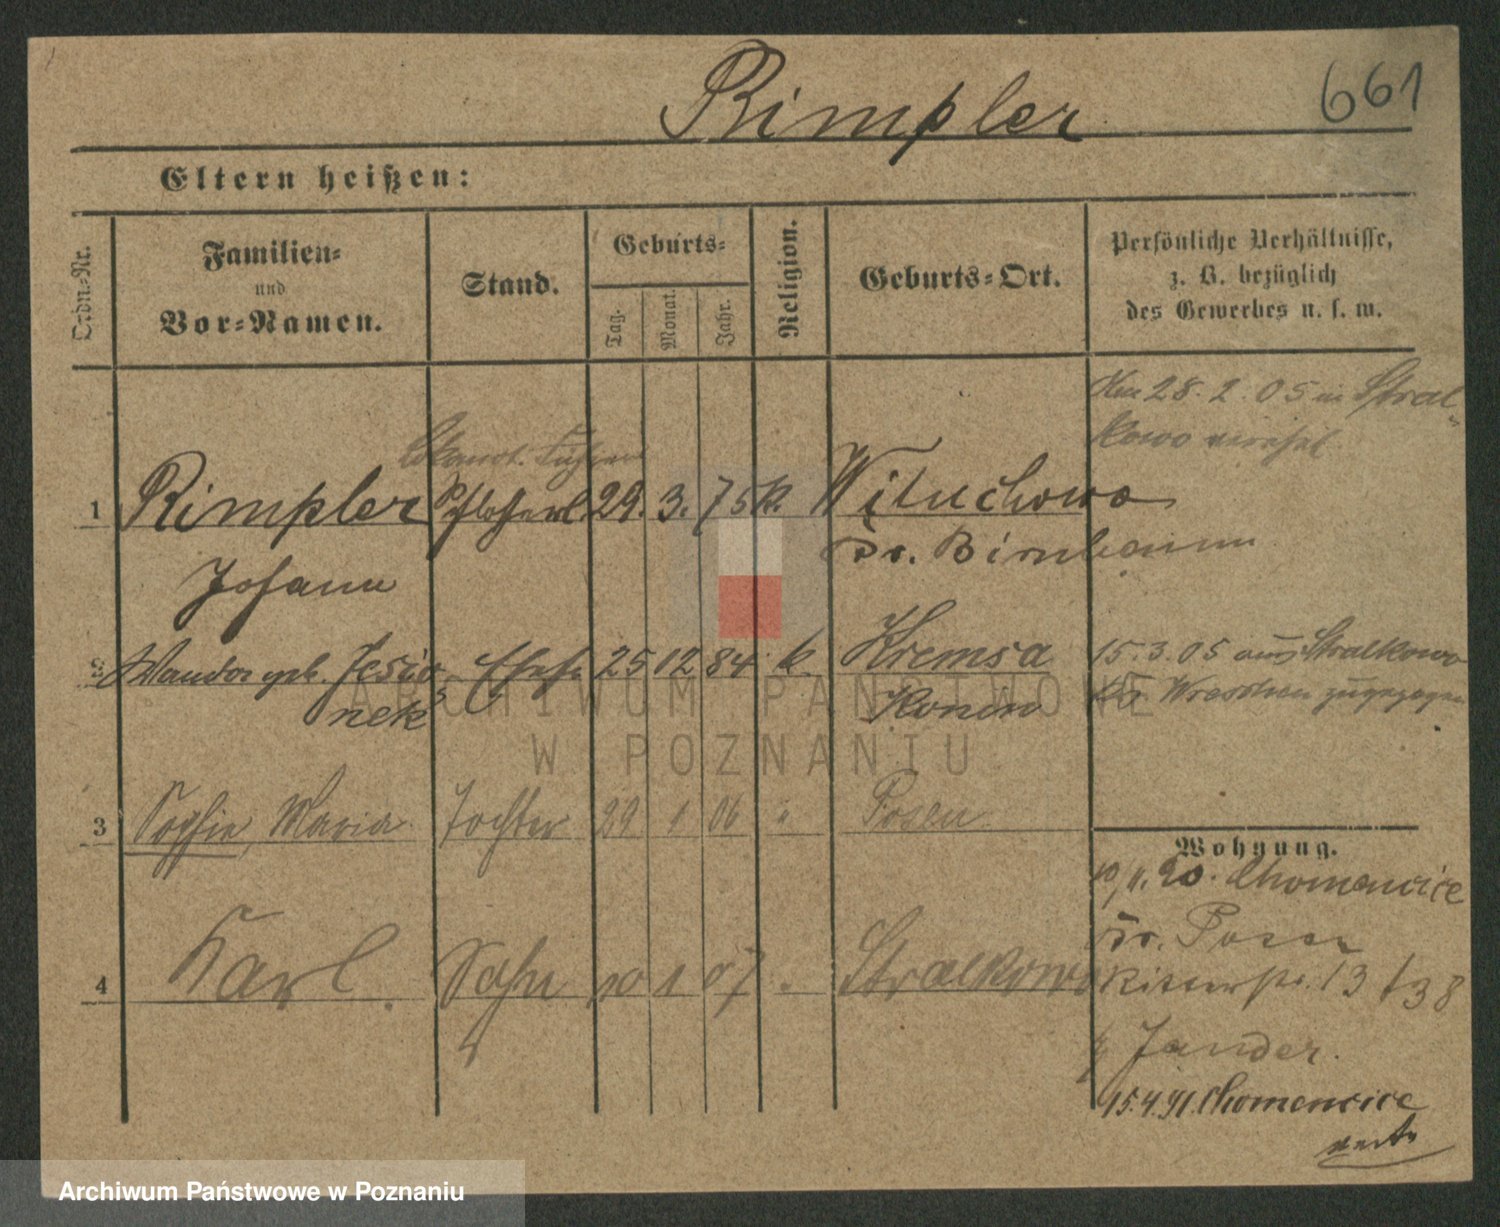 Rimpler
661
Eltern heißen:
Ordn.-Nr.
Familien-
und
Vor-Namen.
Stand.
Geburts-
Tag.
Monat.
Jahr.
Religion.
Geburts-Ort.
Persönliche Verhältnisse,
z. B. bezüglich
des Gewerbes u. s. w.
28. 2. 05 in Stral-
kowo
1 Rimpler 29. 3. 75 k. Wituchowo
Johann Kr. Birnbaum
2 Wanda geb. Jesio- Ehefr. 25 12 84 k. Kremsa 15. 3. 05 aus Stralkowo
nek Konin Kr. Wreschen zugezogen
3 Sophie, Maria Tochter 29 1 06 " Posen
Wohnung.
20. Chomencice
Kr. Posen
4 Karl. Sohn 10 1 07 Stralkowo Ritterstr. 13 / 38
b/ Jander.
15.4.91. Chomencice
ARCHIWUM PAŃSTWOWE
W POZNANIU
Archiwum Państwowe w Poznaniu